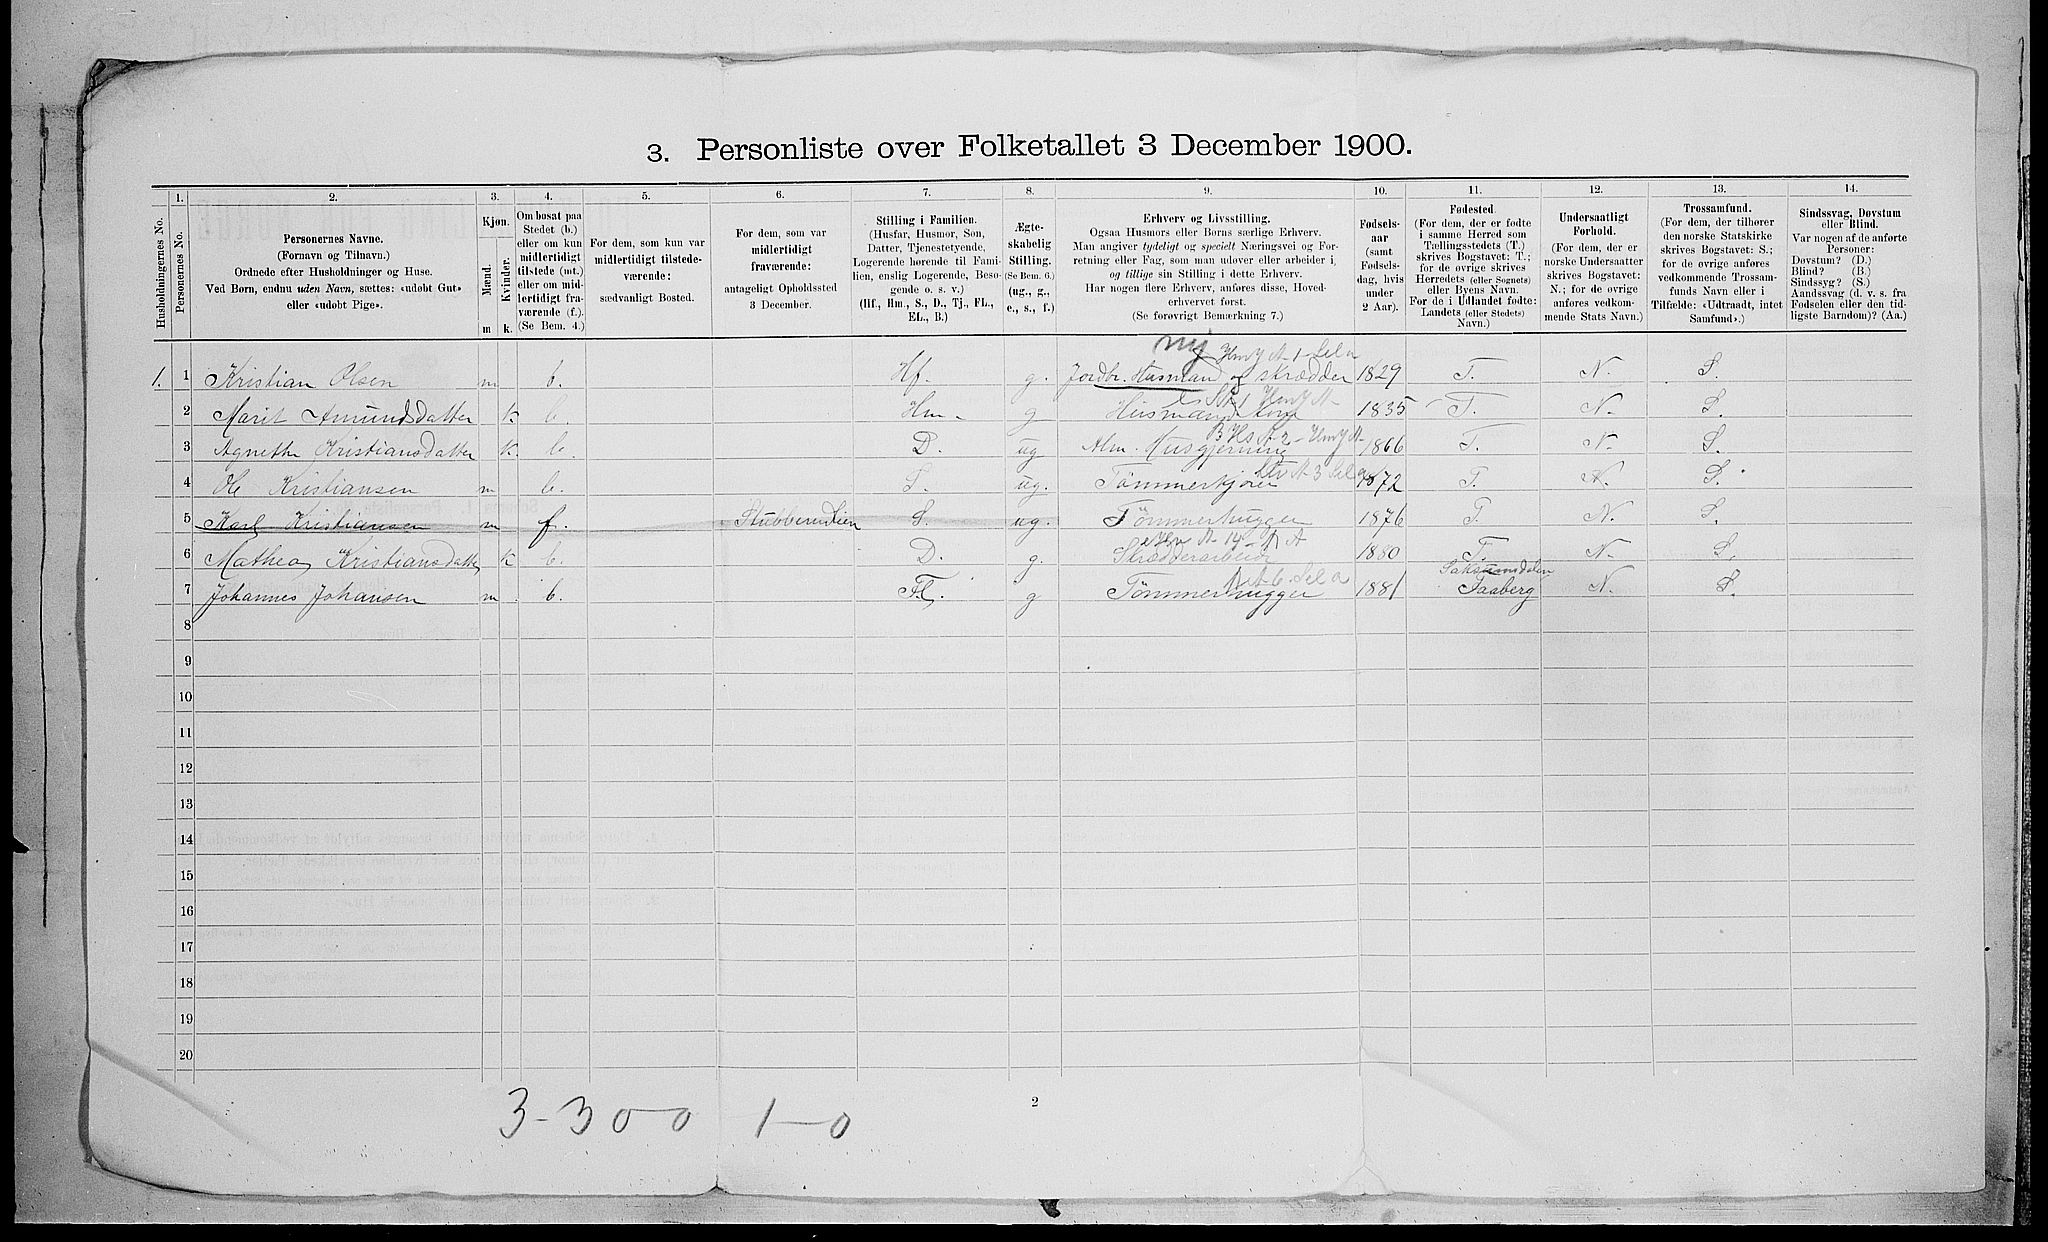 3. Personliste over Folketallet 3 December 1900.
1. 2. 3. 4. 5. 6. 7. 8. 9. 10. 11. 12. 13. 14.
Husholdningernes No.
Personernes No.
Personernes Navne.
(Fornavn og Tilnavn.)
Ordnede efter Husholdninger og Huse.
Ved Børn, endnu uden Navn, sættes: «udøbt Gut»
eller «udøbt Pige».
Kjøn.
Mænd.
Kvinder.
m k.
Om bosat paa
Stedet (b.)
eller om kun
midlertidigt
tilstede (mt.)
eller om mid-
lertidigt fra-
værende (f.).
(Se Bem. 4.)
For dem, som kun var
midlertidigt tilstede-
værende:
sædvanligt Bosted.
For dem, som var
midlertidigt
fraværende:
antageligt Opholdssted
3 December.
Stilling i Familien.
(Husfar, Husmor, Søn,
Datter, Tjenestetyende,
Logerende hørende til Fami-
lien, enslig Logerende, Besø-
gende o. s. v.)
(Hf., Hm., S., D., Tj., FL.,
EL., B.)
Ægte-
skabelig
Stilling.
(Se Bem. 6.)
(ug., g.,
e., s., f.)
Erhverv og Livsstilling.
Ogsaa Husmors eller Børns særlige Erhverv.
Man angiver tydeligt og specielt Næringsvei og For-
retning eller Fag, som man udøver eller arbeider i,
og tillige sin Stilling i dette Erhverv.
Har nogen flere Erhverv, anføres disse, Hoved-
erhvervet først.
(Se forøvrigt Bemærkning 7.)
Fødsels-
aar
(samt
Fødsels-
dag, hvis
under
2 Aar).
Fødested.
(For dem, der er fødte
i samme Herred som
Tællingsstedets (T.)
skrives Bogstavet: T.;
for de øvrige skrives
Herredets (eller Sognets)
eller Byens Navn.
For de i Udlandet fødte:
Landets (eller Stedets)
Navn.)
Undersaatligt
Forhold.
(For dem, der er
norske Undersaatter
skrives Bogstavet:
N.; for de øvrige
anføres vedkom-
mende Stats Navn.)
Trossamfund.
(For dem, der tilhører
den norske Statskirke
skrives Bogstavet: S.;
for de øvrige anføres
vedkommende Trossam-
funds Navn eller i
Tilfælde: «Udtraadt, intet
Samfund».)
Sindssvag, Døvstum
eller Blind.
Var nogen af de anførte
Personer:
Døvstum? (D.)
Blind? (B.)
Sindssyg? (S.)
Aandssvag (d. v. s. fra
Fødselen eller den tid-
ligste Barndom)? (Aa.)
1. 1 Kristian Olsen m b. Hf. g. Jordbr. Husmand og skrædder 1829 T. N. S.
2 Marit Amundsdatter k b. Hm. g Husmandskone 1835 T. N. S.
3 Agnethe Kristiansdatter k. b. D. ug Alm. Husgjerning 1866 T. N. S.
4 Ole Kristiansen m b. S. ug. Tømmerkjører 1872 T. N. S.
5 Karl Kristiansen m f. Stubberudlien S. ug. Tømmerhugger 1876 T. N. S.
6 Mathea Kristiansdatter k b. D. g. Skrædderarbeide 1880 T. N. S.
Saksumdalen
7 Johannes Johansen m b. F.L. g Tømmerhugger 1881 Faaberg N. S.
8
9
10
11
12
13
14
15
16
17
18
19
20
3-300 1-0
2